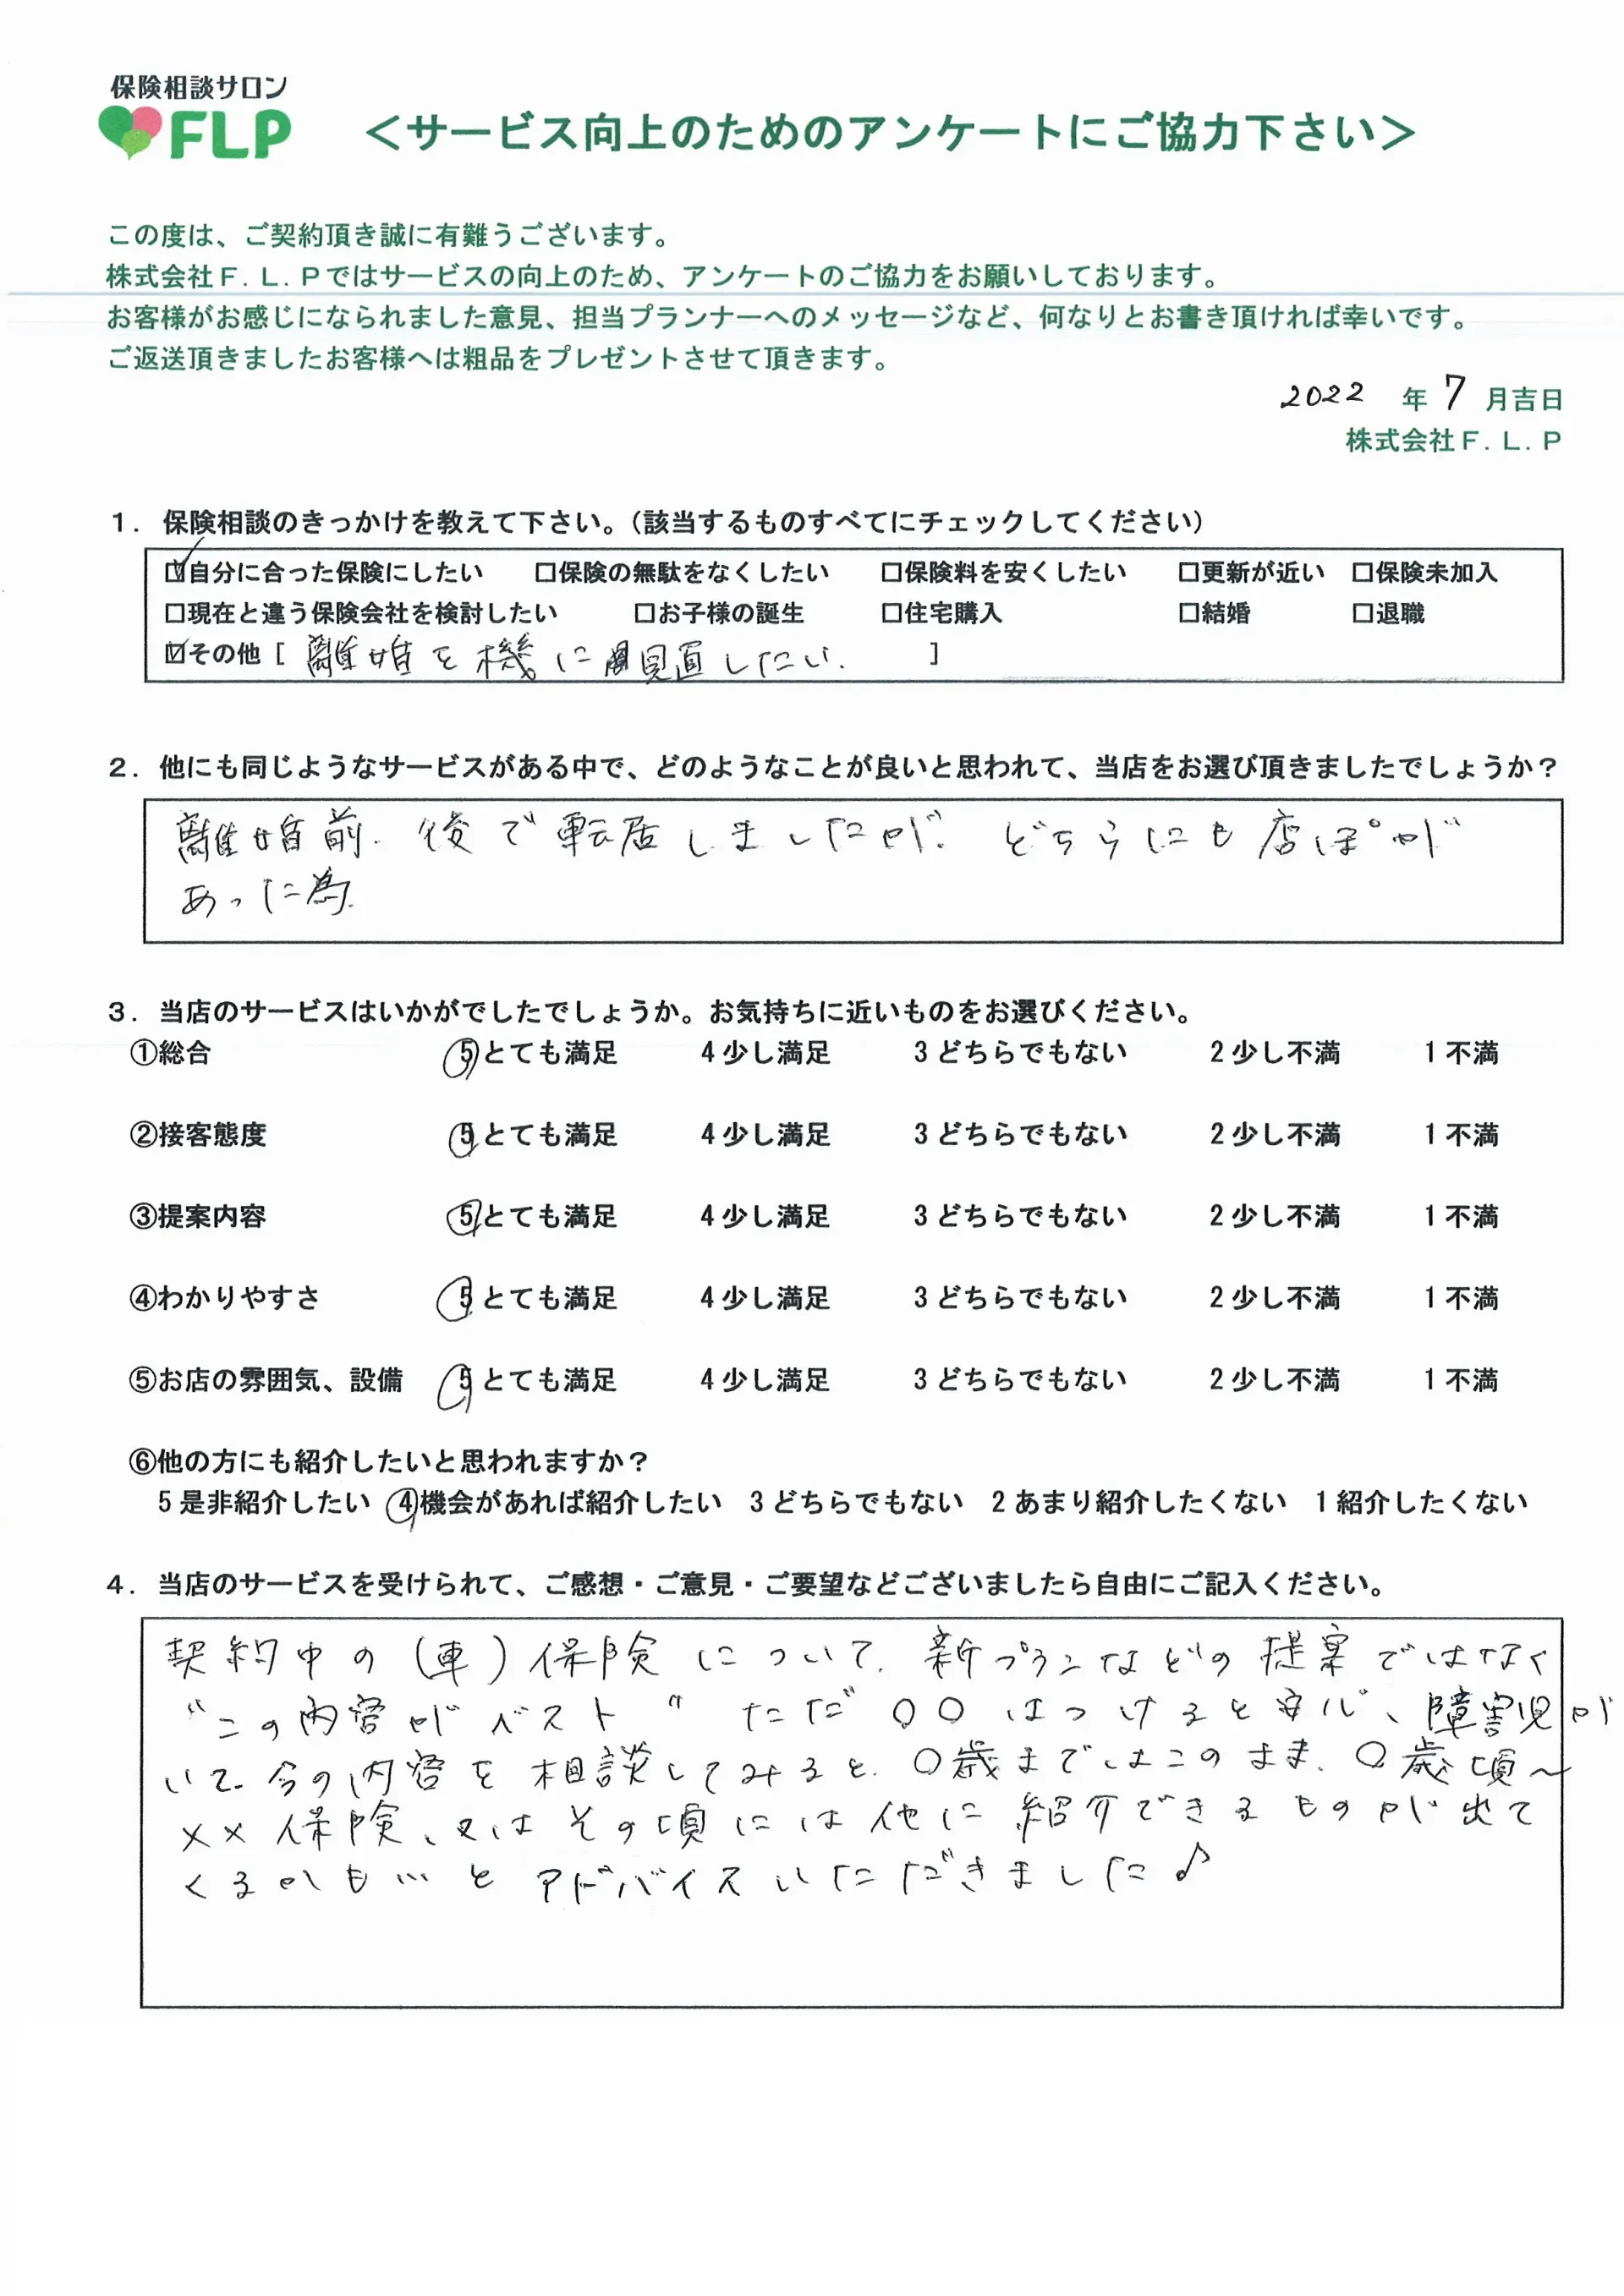 保険相談サロン
FLP
＜サービス向上のためのアンケートにご協力下さい＞
この度は、ご契約頂き誠に有難うございます。
株式会社Ｆ．Ｌ．Ｐではサービスの向上のため、アンケートのご協力をお願いしております。
お客様がお感じになられました意見、担当プランナーへのメッセージなど、何なりとお書き頂ければ幸いです。
ご返送頂きましたお客様へは粗品をプレゼントさせて頂きます。
2022 年 7 月吉日
株式会社Ｆ．Ｌ．Ｐ
１．保険相談のきっかけを教えて下さい。（該当するものすべてにチェックしてください）
☑自分に合った保険にしたい □保険の無駄をなくしたい □保険料を安くしたい □更新が近い □保険未加入
□現在と違う保険会社を検討したい □お子様の誕生 □住宅購入 □結婚 □退職
☑その他［ 離婚を機に見直したい. ］
２．他にも同じようなサービスがある中で、どのようなことが良いと思われて、当店をお選び頂きましたでしょうか？
離婚前.後で転居しましたが、どちらにも店ぽが
あった為.
３．当店のサービスはいかがでしたでしょうか。お気持ちに近いものをお選びください。
①総合 5 とても満足 4 少し満足 3 どちらでもない 2 少し不満 1 不満
②接客態度 5 とても満足 4 少し満足 3 どちらでもない 2 少し不満 1 不満
③提案内容 5 とても満足 4 少し満足 3 どちらでもない 2 少し不満 1 不満
④わかりやすさ 5 とても満足 4 少し満足 3 どちらでもない 2 少し不満 1 不満
⑤お店の雰囲気、設備 5 とても満足 4 少し満足 3 どちらでもない 2 少し不満 1 不満
⑥他の方にも紹介したいと思われますか？
5 是非紹介したい 4 機会があれば紹介したい 3 どちらでもない 2 あまり紹介したくない 1 紹介したくない
４．当店のサービスを受けられて、ご感想・ご意見・ご要望などございましたら自由にご記入ください。
契約中の（車）保険について、新プランなどの提案ではなく
“この内容がベスト” ただ〇〇はつけると安心、障害児が
いて、今の内容を相談してみると、〇歳まではこのまま、〇歳頃～
××保険、又はその頃には他に紹介できるものが出て
くるかも…とアドバイスいただきました♪